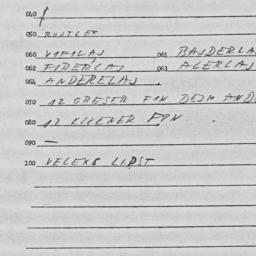 040
050 ROJTLEX
060 VIFILAJ 061 BAJDERLA
062 FIDERLAJ 063 ALERLAJ
064 ANDERELAJ
070 12 GRESER FIN DEJM AND
080 12 KLENER FIN
090 —
100 VELEXS LIPST